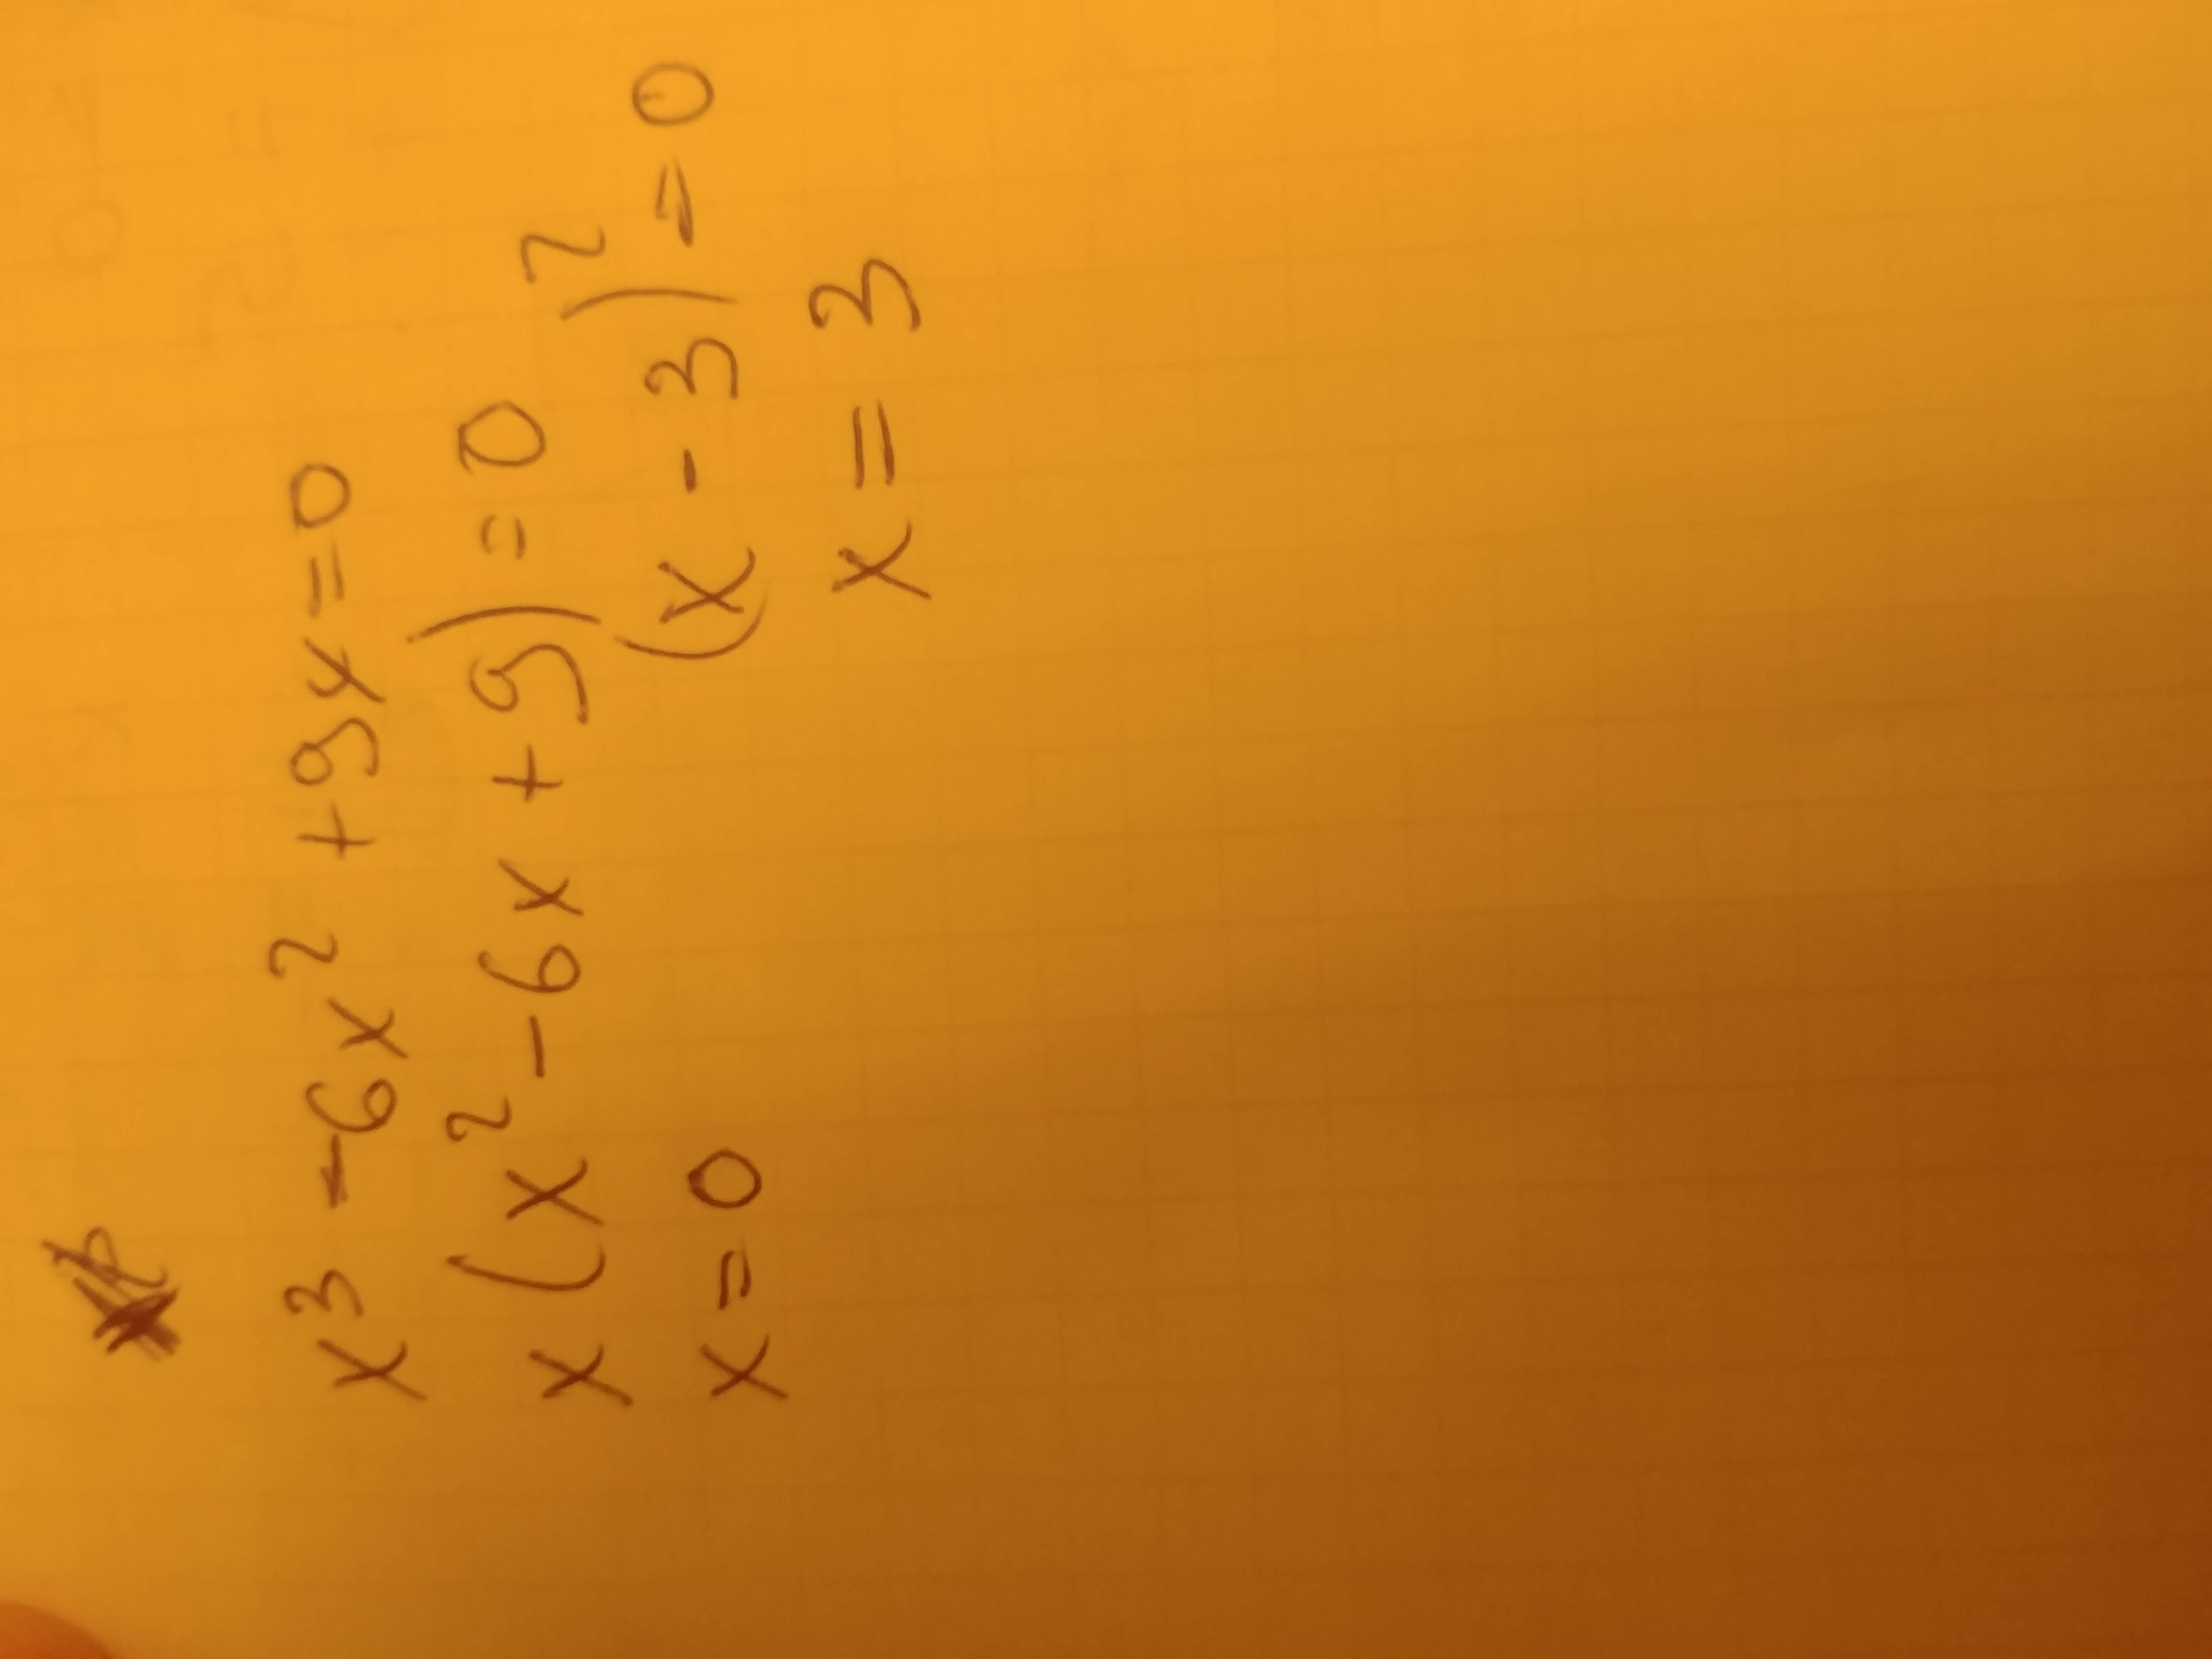 x³ - 6x² + 9x = 0
x (x² - 6x + 9) = 0
x = 0 (x - 3)² = 0
x = 3